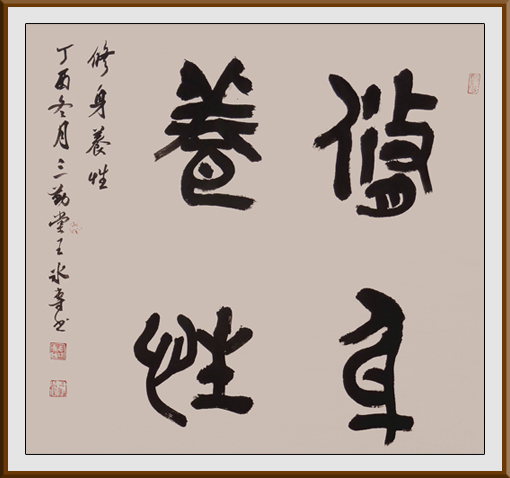 修身
養性
修身養性
丁酉冬月三勤堂王冰專书